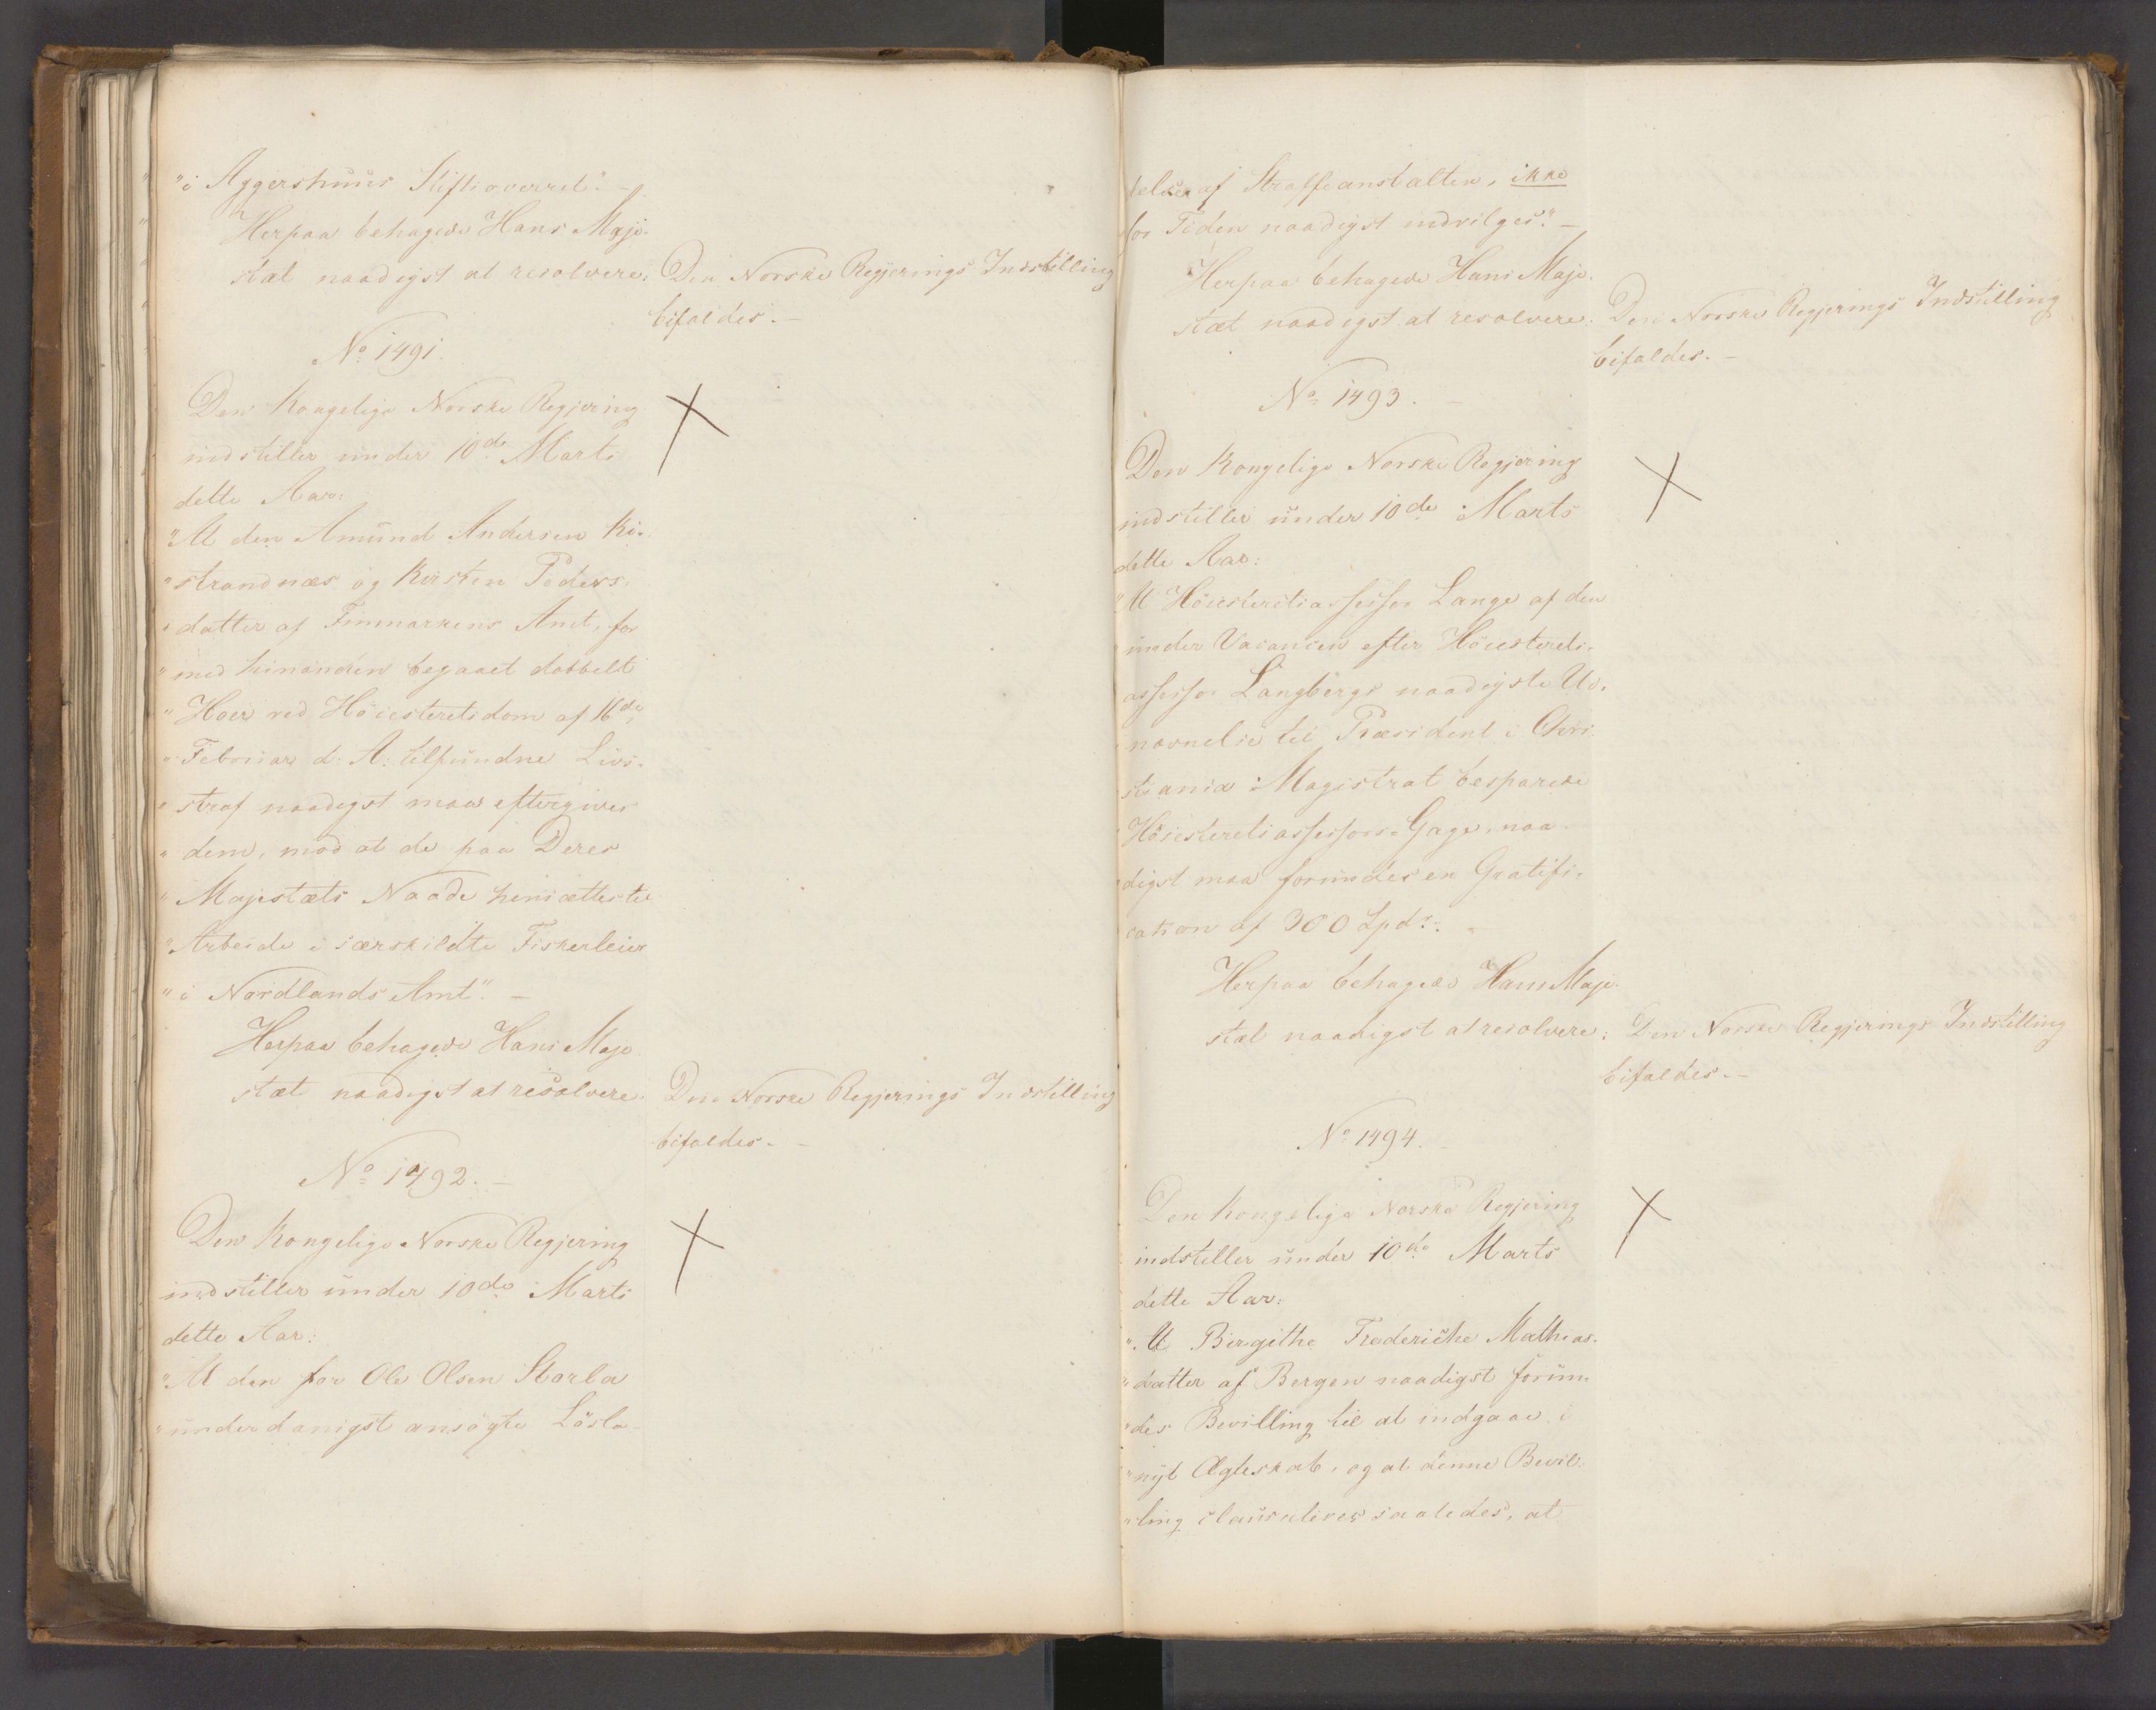 "i Aggershuus Stiftsoverret". -
Herpaa behagede Hans Maje-
stæt naadigst at resolvere: Den Norske Regjerings Indstilling
bifaldes. -
No 1491.
Den Kongelige Norske Regjering
indstiller under 10de Marts
dette Aar:
"At den Amund Andersen Ki-
"strandnæs og Kirsten Peders-
"datter af Finmarkens Amt, for
"med hinanden begaaet dobbelt
"Hoer ved Höiesteretsdom af 16de
"Februar d: A: tilfundne Livs-
"straf naadigst maa eftergives
"dem, mod at de paa Deres
"Majestæts Naade hensættes til
"Arbeide i særskildte Fiskerleier
"i Nordlands Amt". -
Herpaa behagede Hans Maje-
stæt naadigst at resolvere: Den Norske Regjerings Indstilling
bifaldes. -
No 1492. -
Den Kongelige Norske Regjering
indstiller under 10de Marts
dette Aar:
"At den for Ole Olsen Storla
"underdanigst ansögte Lösla-
telse af Straffeanstalten, ikke
for Tiden naadigst indvilges". -
Herpaa behagede Hans Maje-
stæt naadigst at resolvere: Den Norske Regjerings Indstilling
bifaldes. -
No 1493. -
Den Kongelige Norske Regjering
indstiller under 10de Marts
dette Aar:
"At Höiesteretsassessor Lange af den
"under Vacancen efter Höiesterets-
assessor Langbergs naadigste Ud-
nævnelse til Præsident i Chri-
stiania Magistrat besparede
"Höiesteretsassessors-Gage, naa-
"digst maa forundes en Gratifi-
cation af 300 Spd". -
Herpaa behagede Hans Maje-
stæt naadigst at resolvere: Den Norske Regjerings Indstilling
bifaldes. -
No 1494. -
Den Kongelige Norske Regjering
indstiller under 10de Marts
dette Aar:
"At Birgithe Frederiche Mathias-
"datter af Bergen naadigst forun-
"des Bevilling til at indgaae i
"nyt Ægteskab, og at denne Bevil-
"ling clausuleres saaledes, at